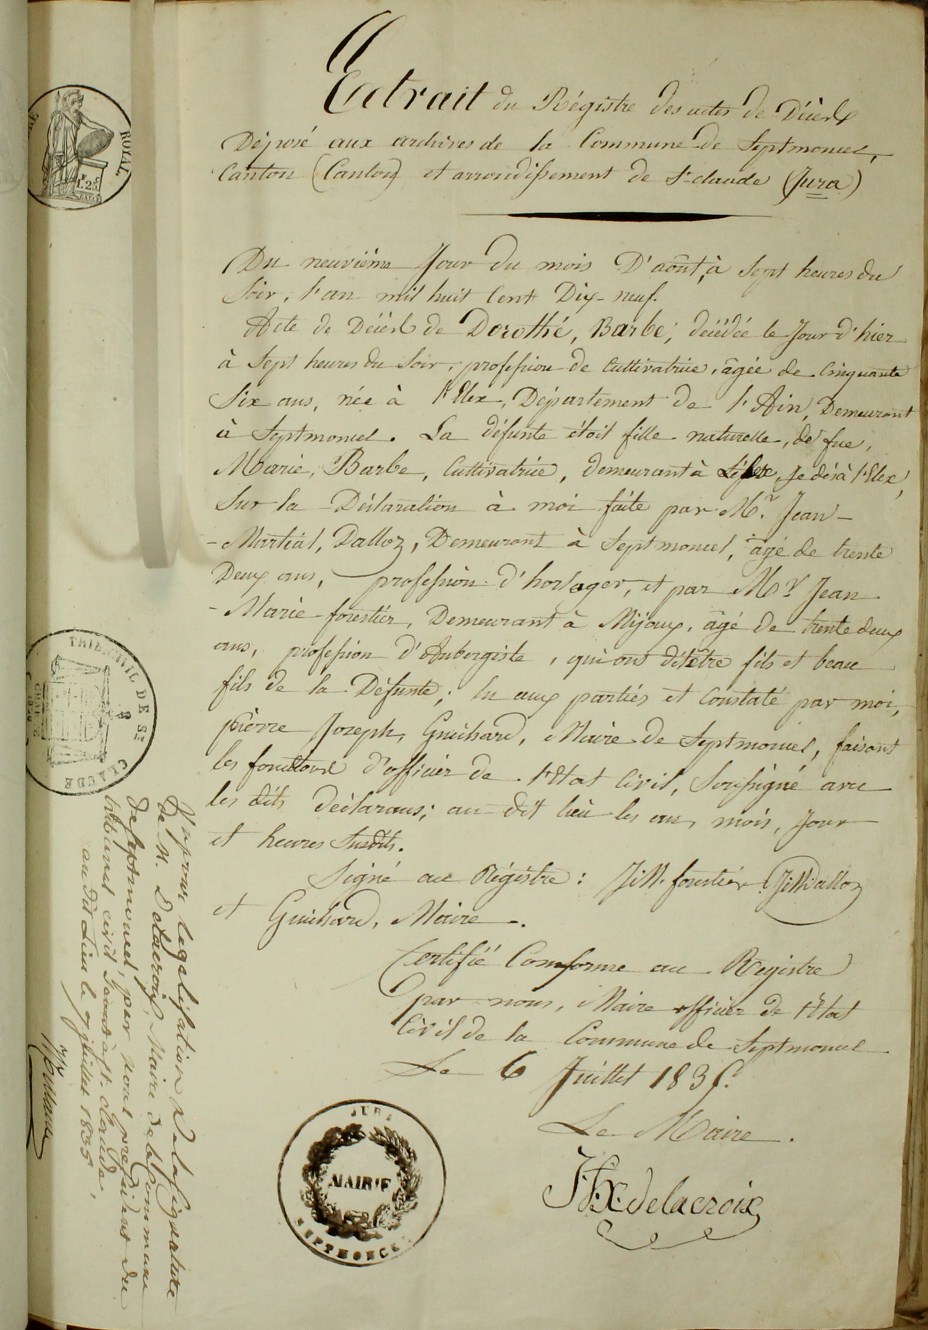 Extrait du Régistre des actes de Décès
Déposé aux archives de la Commune de Septmoncel,
Canton (Canton) et arrondissement de St claude (Jura)
Du neuvième Jour du mois D'août, à Sept heures du
Soir, l'an mil huit Cent Dix-neuf.
Acte de Décès de Dorothé, Barbe, décédée le Jour d'hier
à Sept heures du Soir, profession de Cultivatrice, âgée de Cinquante
Six ans, née à l'Elex, Département de l'Ain, Demeurant
à Septmoncel. La défunte étoit fille naturelle, de fue,
Marie, Barbe, Cultivatrice, demeurant à je dis à l'Elex,
Sur la Déclaration à moi faite par Mr. Jean-
-Martial, Dalloz, Demeurant à Septmoncel, âgé de trente
Deux ans, profession d'horloger, et par Mr Jean
-Marie forestier, Demeurant à Mijoux, âgé de trente deux
ans, profession d'Aubergiste, qui ont dit être fils et beau
fils de la Défunte; lu aux parties et Constaté par moi,
pierre Joseph, Guichard, Maire de Septmoncel, faisant
les fonctions d'officier de l'Etat Civil, Soussigné avec
les dits déclarans; au dit lieu les an, mois, Jour
et heures Susdits.
Signé au Régistre: J:M. forestier J:M Dalloz
et Guichard, Maire.
Certifié Conforme au Registre
par nous, Maire officier de l'Etat
Civil de la Commune de Septmoncel
Le 6 Juillet 1835.
Le Maire.
J. F. X. delacroix
ROYAL
1f. 25
TRIB. CIVIL DE ST
CLAUDE
JURA
MAIRIE
SEPTMONCEL
Vu pour légalisation de la signature
de M. Delacroix, Maire de la Commune
de Septmoncel, par nous président du
tribunal civil séant à St. Claude,
au dit Lieu le 7 juillet 1835.